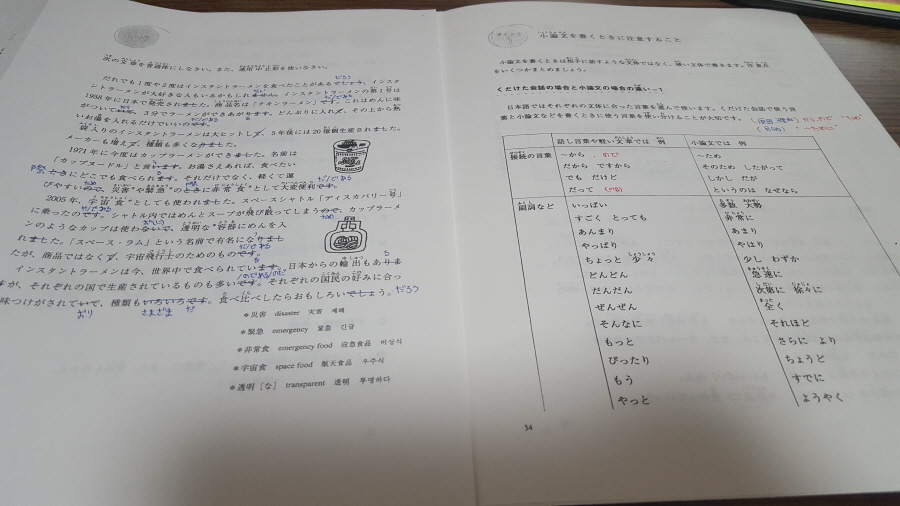 次の文章を普通体にしなさい。また、適宜中止形を使いなさい。
だれでも1度や2度はインスタントラーメンを食べたことがあるでしょう。インスタ
ントラーメンが大好きな人もいるかもしれません。インスタントラーメンの第1号は
1958年に日本で発売されました。商品名は「チキンラーメン」です。これはめんに味
がついていて、3分でラーメンができあがります。どんぶりに入れて、その上から熱
いお湯を入れるだけでいいのです。
袋入りのインスタントラーメンは大ヒットして、5年後には20億個生産されました。
メーカーも増えて、種類も多くなりました。
1971年に今度はカップラーメンができました。名前は
「カップヌードル」と言います。お湯さえあれば、食べたい
ときにどこでも食べられます。それだけでなく、軽くて運
びやすいので、災害*や緊急*のときに非常食*として大変便利です。
2005年、宇宙食*としても使われました。スペースシャトル「ディスカバリー号」
に乗ったのです。シャトル内ではめんとスープが飛び散ってしまうので、カップラーメ
ンのようなカップは使わないで、透明な*容器にめんを入
れました。「スペース・ラム」という名前で有名になりまし
たが、商品ではなくて、宇宙飛行士のためのものです。
インスタントラーメンは今、世界中で食べられています。日本からの輸出もありま
すが、それぞれの国で生産されているものも多いです。それぞれの国民の好みに合っ
味つけがされていて、種類もいろいろです。食べ比べしたらおもしろいでしょう。
だろう
おり
さまざま
だ
*災害 disaster 灾害 재해
*緊急 emergency 紧急 긴급
*非常食 emergency food 应急食品 비상식
*宇宙食 space food 航天食品 우주식
*透明[な] transparent 透明 투명하다
小論文を書くときに注意すること
小論文を書くときは相手に話すような文体ではなく、硬い文体で書きます。注意点
をいくつかまとめましょう。
くだけた会話の場合と小論文の場合の違い－1
日本語ではそれぞれの文体に合った言葉を選んで使います。くだけた会話で使う言
葉と小論文などを書くときに使う言葉を使い分けることが大切です。
話し言葉や軽い文章では 例 小論文では 例
接続の言葉 ～から ～ため
だから ですから そのため したがって
でも だけど しかし だが
だって というのは なぜなら
副詞など いっぱい 多数 大勢
すごく とっても 非常に
あんまり あまり
やっぱり やはり
ちょっと 少々 少し わずか
どんどん 急速に
だんだん 次第に 徐々に
ぜんぜん 全く
そんなに それほど
もっと さらに より
ぴったり ちょうど
もう すでに
やっと ようやく
34